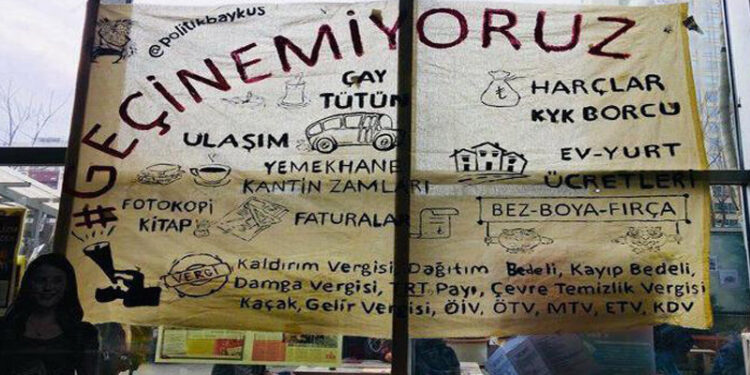 @politikbaykus
#GEÇİNEMİYORUZ
ÇAY
TÜTÜN
ULAŞIM
YEMEKHANE
KANTİN ZAMLARI
FOTOKOPİ
KİTAP
FATURALAR
HARÇLAR
KYK BORCU
EV-YURT
ÜCRETLERİ
BEZ-BOYA-FIRÇA
VERGİ
Kaldırım Vergisi, Dağıtım Bedeli, Kayıp Bedeli,
Damga Vergisi, TRT Payı, Çevre Temizlik Vergisi
Kaçak, Gelir Vergisi, ÖİV, ÖTV, MTV, ETV, KDV